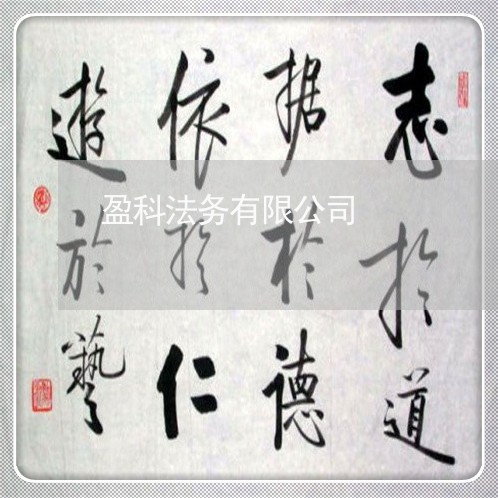 志於道
据於德
依於仁
遊於藝
盈科法务有限公司